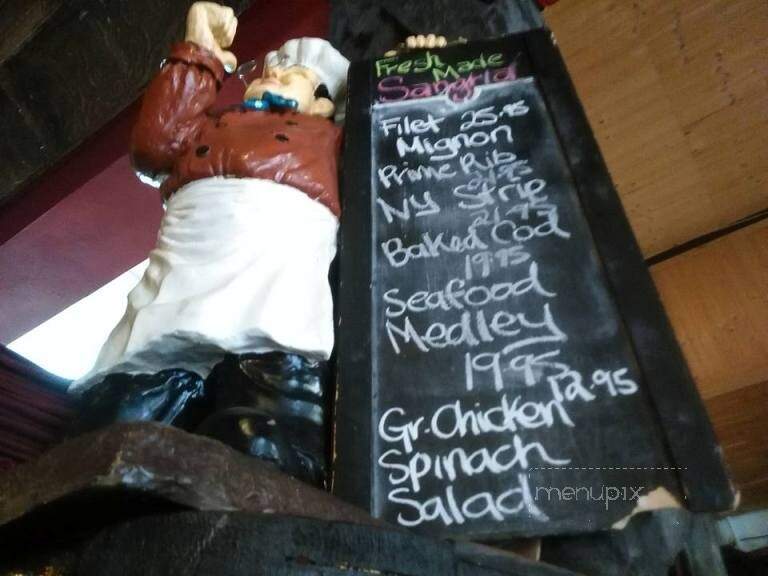 Fresh
Made
Sangria
Filet 25.95
Mignon
Prime Rib
21.95
NY Strip
21.95
Baked Cod
19.95
Seafood
Medley
19.95
12.95
Gr. Chicken
Spinach
Salad
menupix